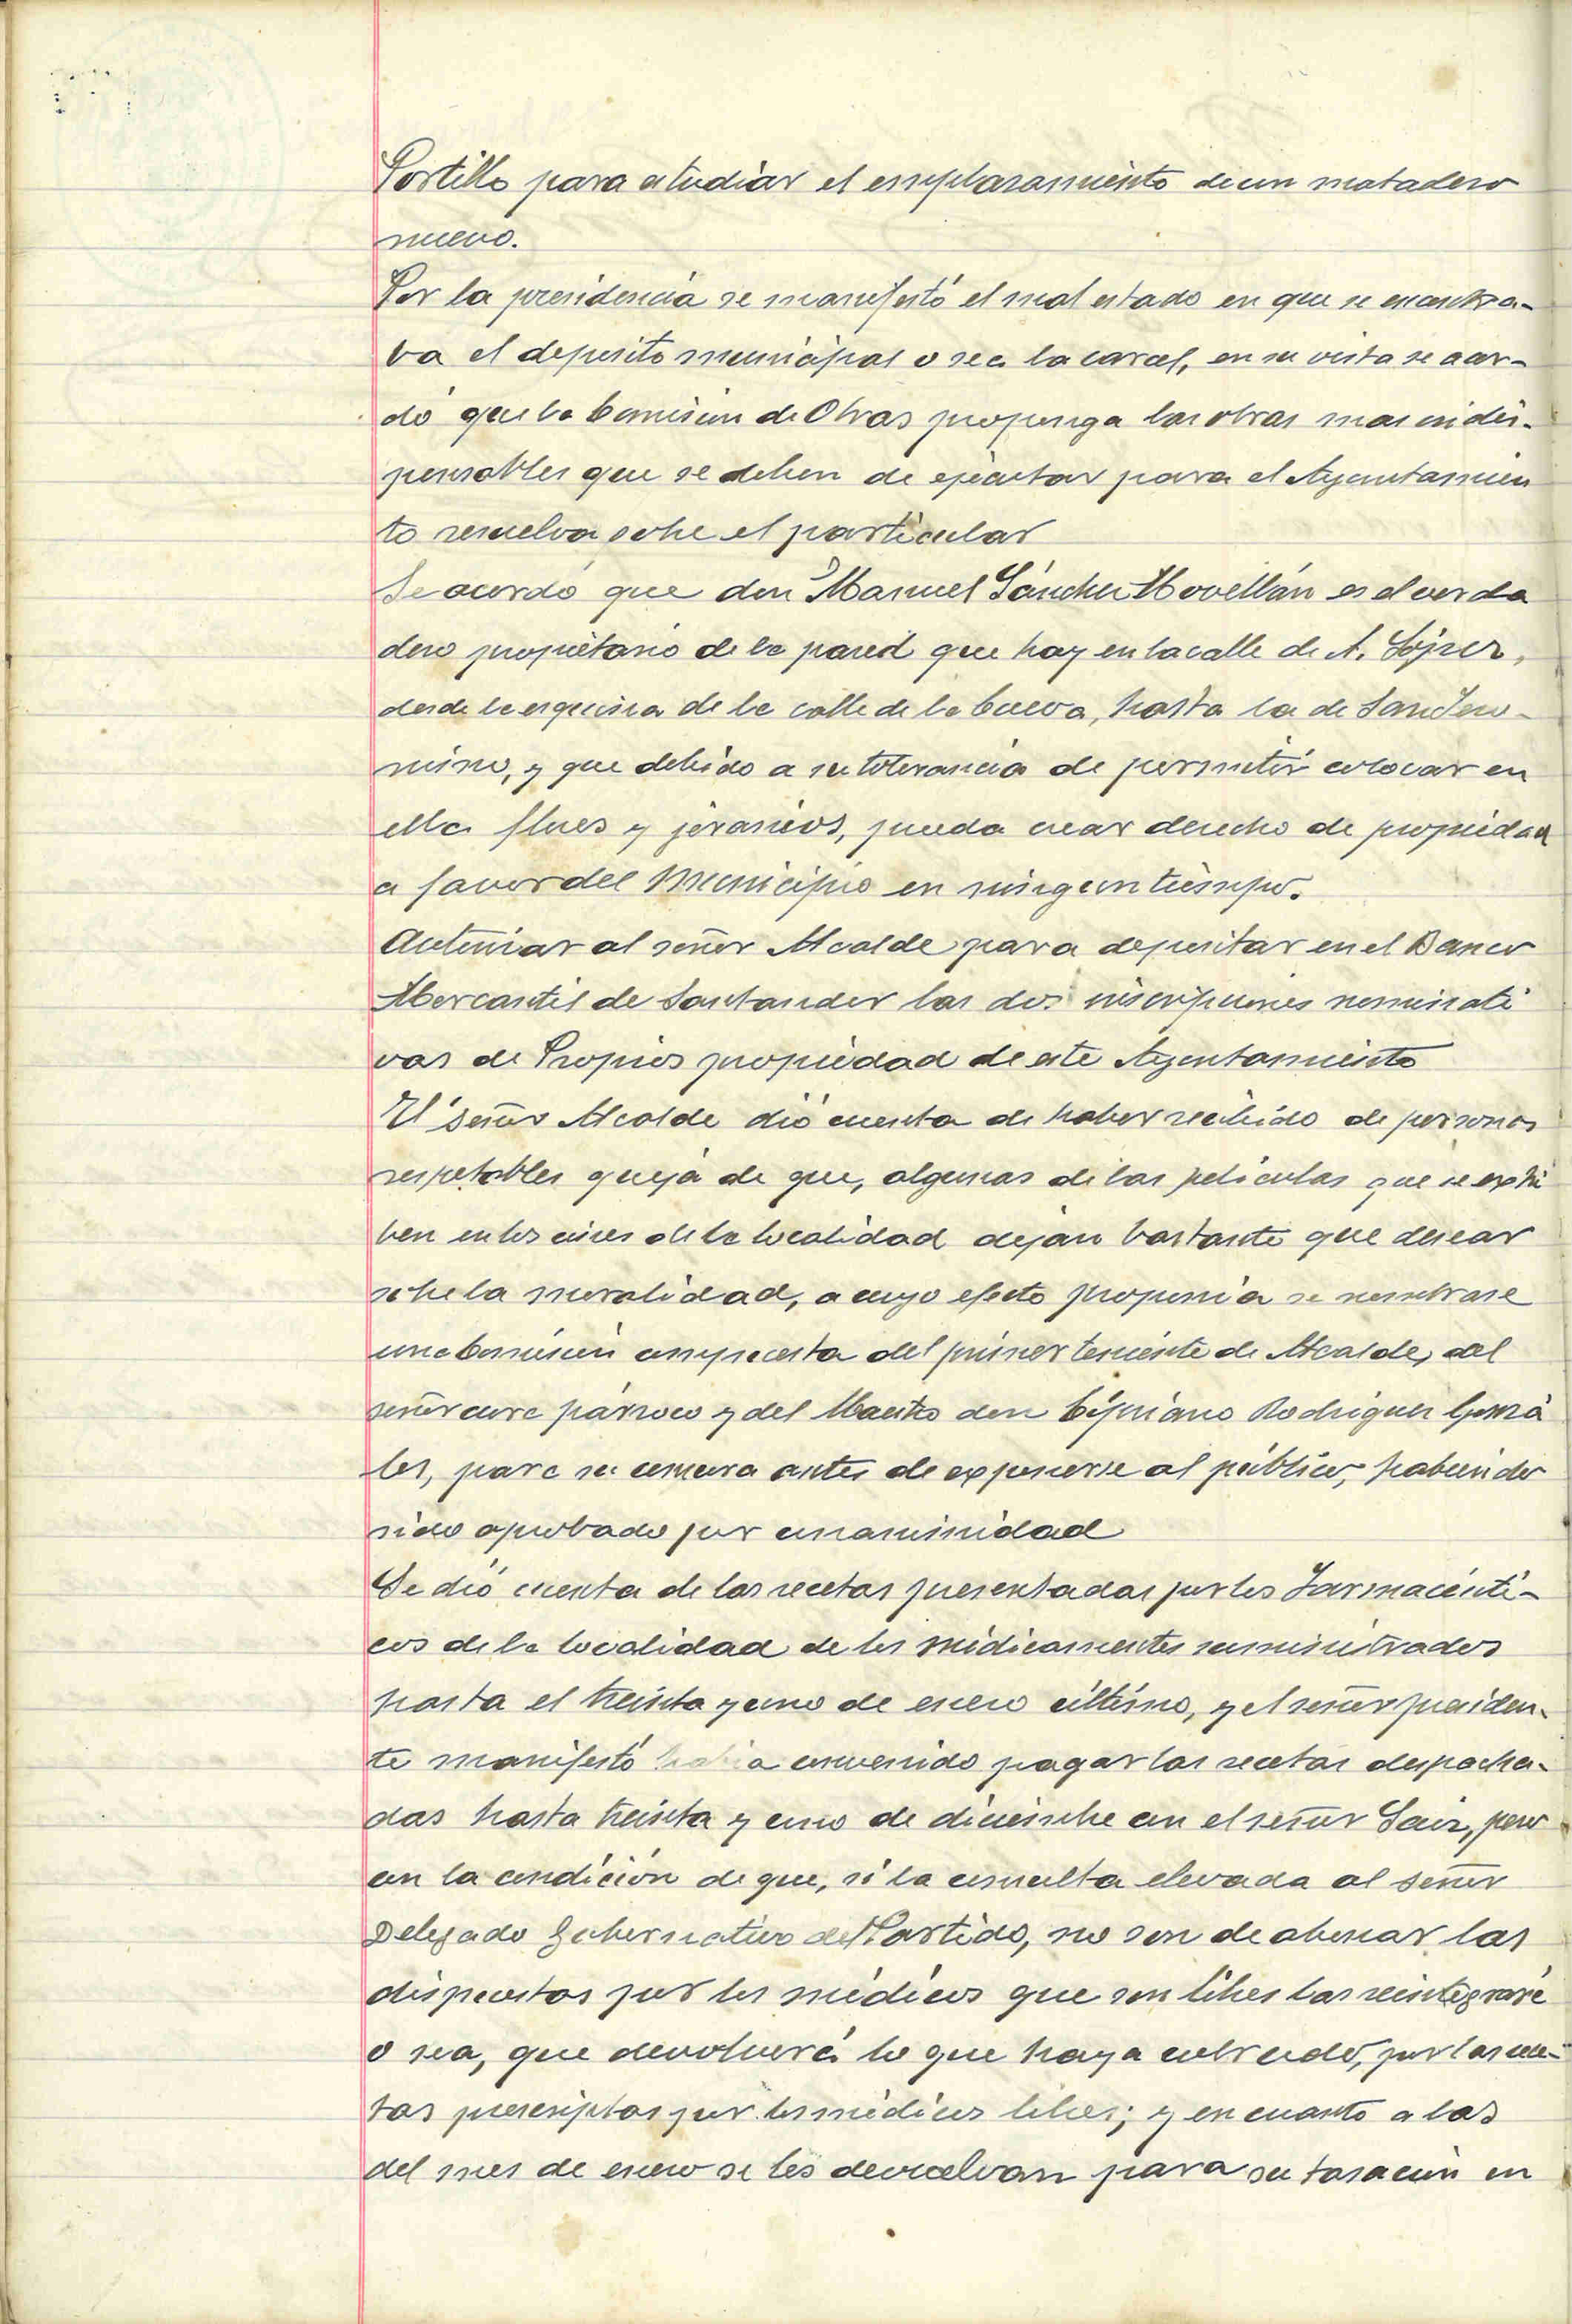 Portillo para estudiar el emplasamiento de un matadero
nuevo.
Por la presidencia se manifestó el mal estado en que se encontra-
ba el deposito municipal o sea la carcel, en su vista se acor-
dó que la Comisión de Obras proponga las obras mas indis-
pensables que se deben de ejecutar para el Ayuntamien
to resuelva sobre el particular
Se acordó que don Manuel Sánchez Movellán es el verda
dero propietario de la pared que hay en la calle de A. López,
desde la esquina de la calle de la Cueva, hasta la de San Jero-
nimo, y que debido a su tolerancia de permitir colocar en
ella flores y jeranios, pueda crear derecho de propiedad
a favor del Municipio en ningun tiempo.
Autorizar al señor Alcalde para depositar en el Banco
Mercantil de Santander las dos inscripciones nominati
vas de Propios propiedad de este Ayuntamiento
El señor Alcalde dió cuenta de haber recibido de personas
respetables queja de que, algunas de las peliculas que se exhi
ben en los cines de la localidad dejan bastante que desear
sobre la moralidad, a cuyo efecto proponia se nombrase
una Comisión compuesta del primer teniente de Alcalde, del
señor cura párroco y del Maestro don Cipriano Rodriguez Gonzá
les, para su censura antes de exponerse al público, habiendo
sido aprobado por unanimidad
Se dió cuenta de las recetas presentadas por los Farmacéuti-
cos de la localidad de los medicamentos suministrados
hasta el treinta y uno de enero último, y el señor presiden-
te manifestó habia convenido pagar las recetas despacha-
das hasta treinta y uno de diciembre con el señor Saiz, pero
con la condición de que, si la consulta elevada al señor
Delegado Gubernativo del Partido, no son de abonar las
dispuestas por los médicos que son libres las reintegraré
o sea, que devolverá lo que haya cobrado, por las rece-
tas prescriptas por los médicos libres; y en cuanto a las
del mes de enero se les devuelvan para su tasación en